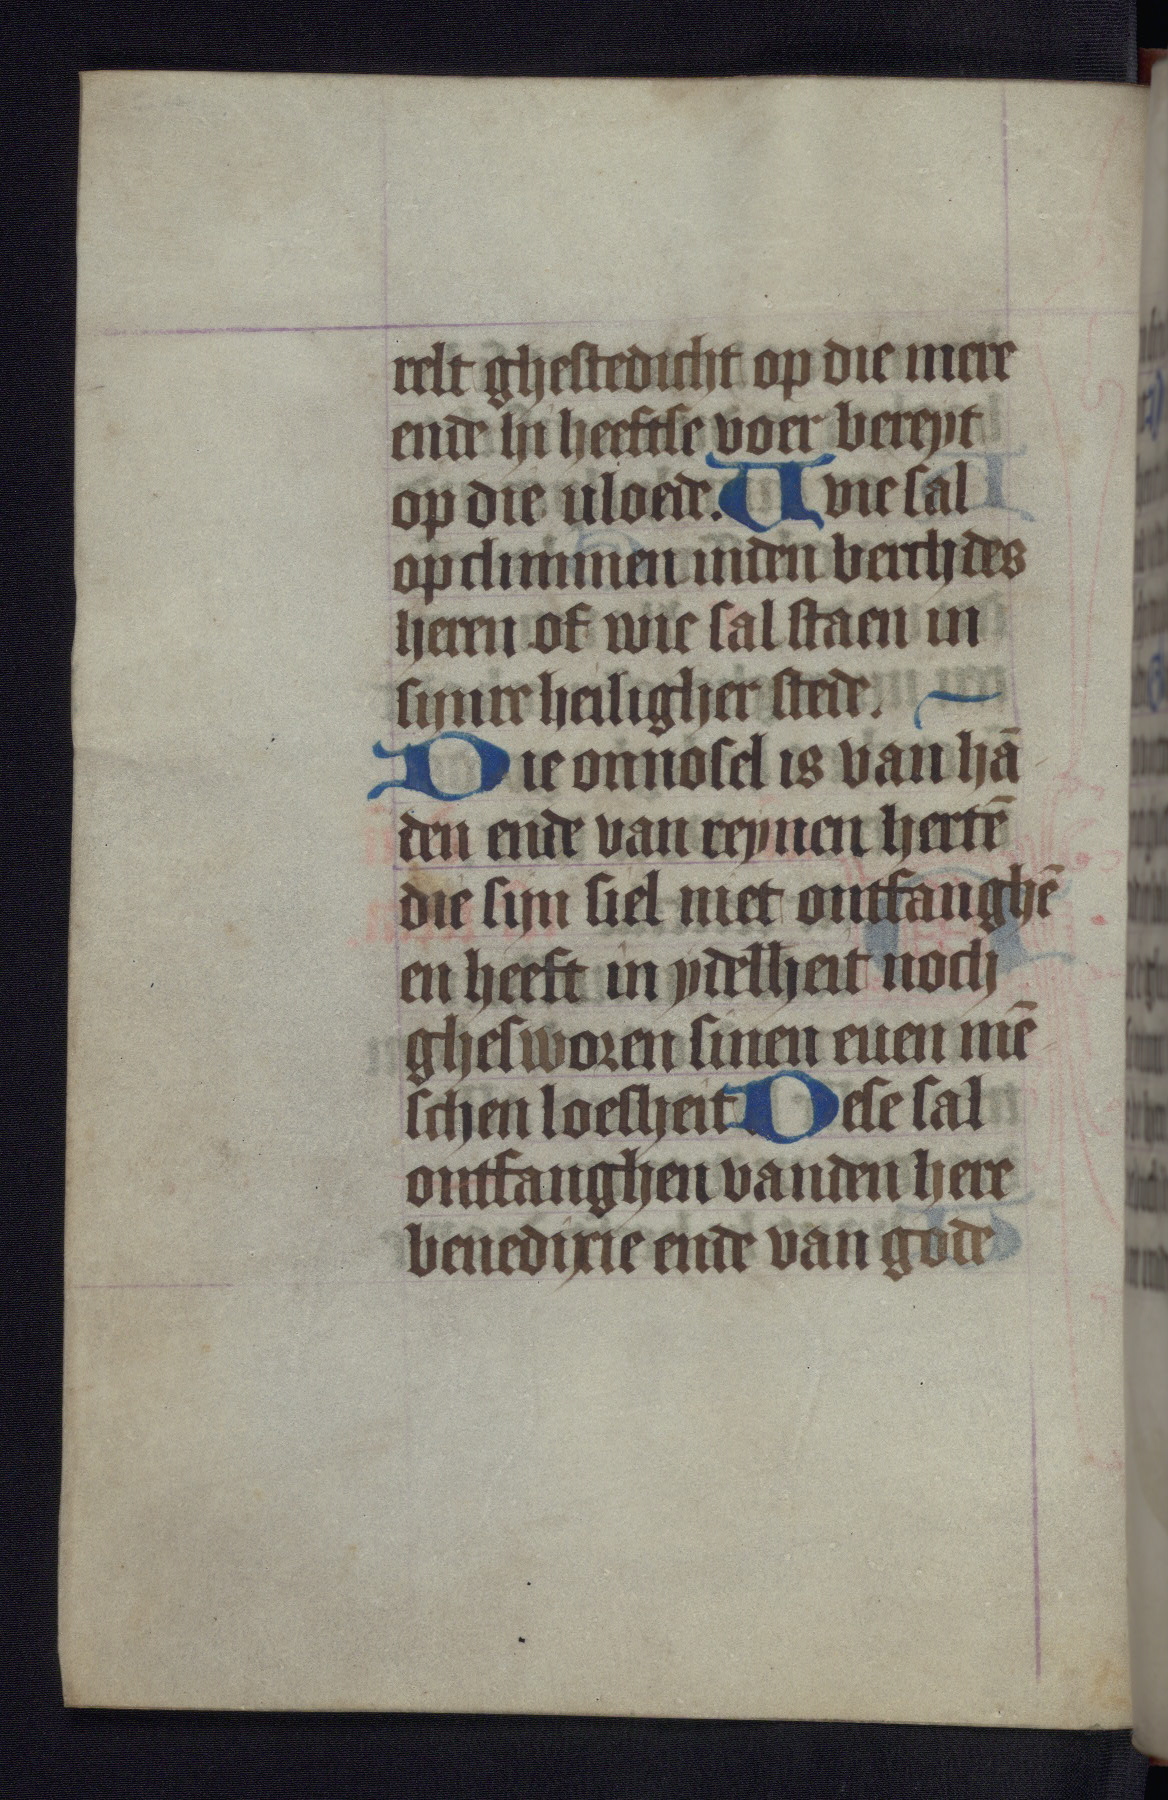 relt ghestedicht op die mere
ende hi heeftse voer bereyt
op die uloede. Uvie sal
opclimmen inden berch des
heren of wie sal staen in
sijnre heiligher stede.
Die onnosel is van hā
den ende van reynen hertē
die sijn siel niet ontfanghē
en heeft in ydelheit noch
ghesworen sinen euen mē
schen loesheit. Dese sal
ontfanghen vanden here
benedixie ende van gode